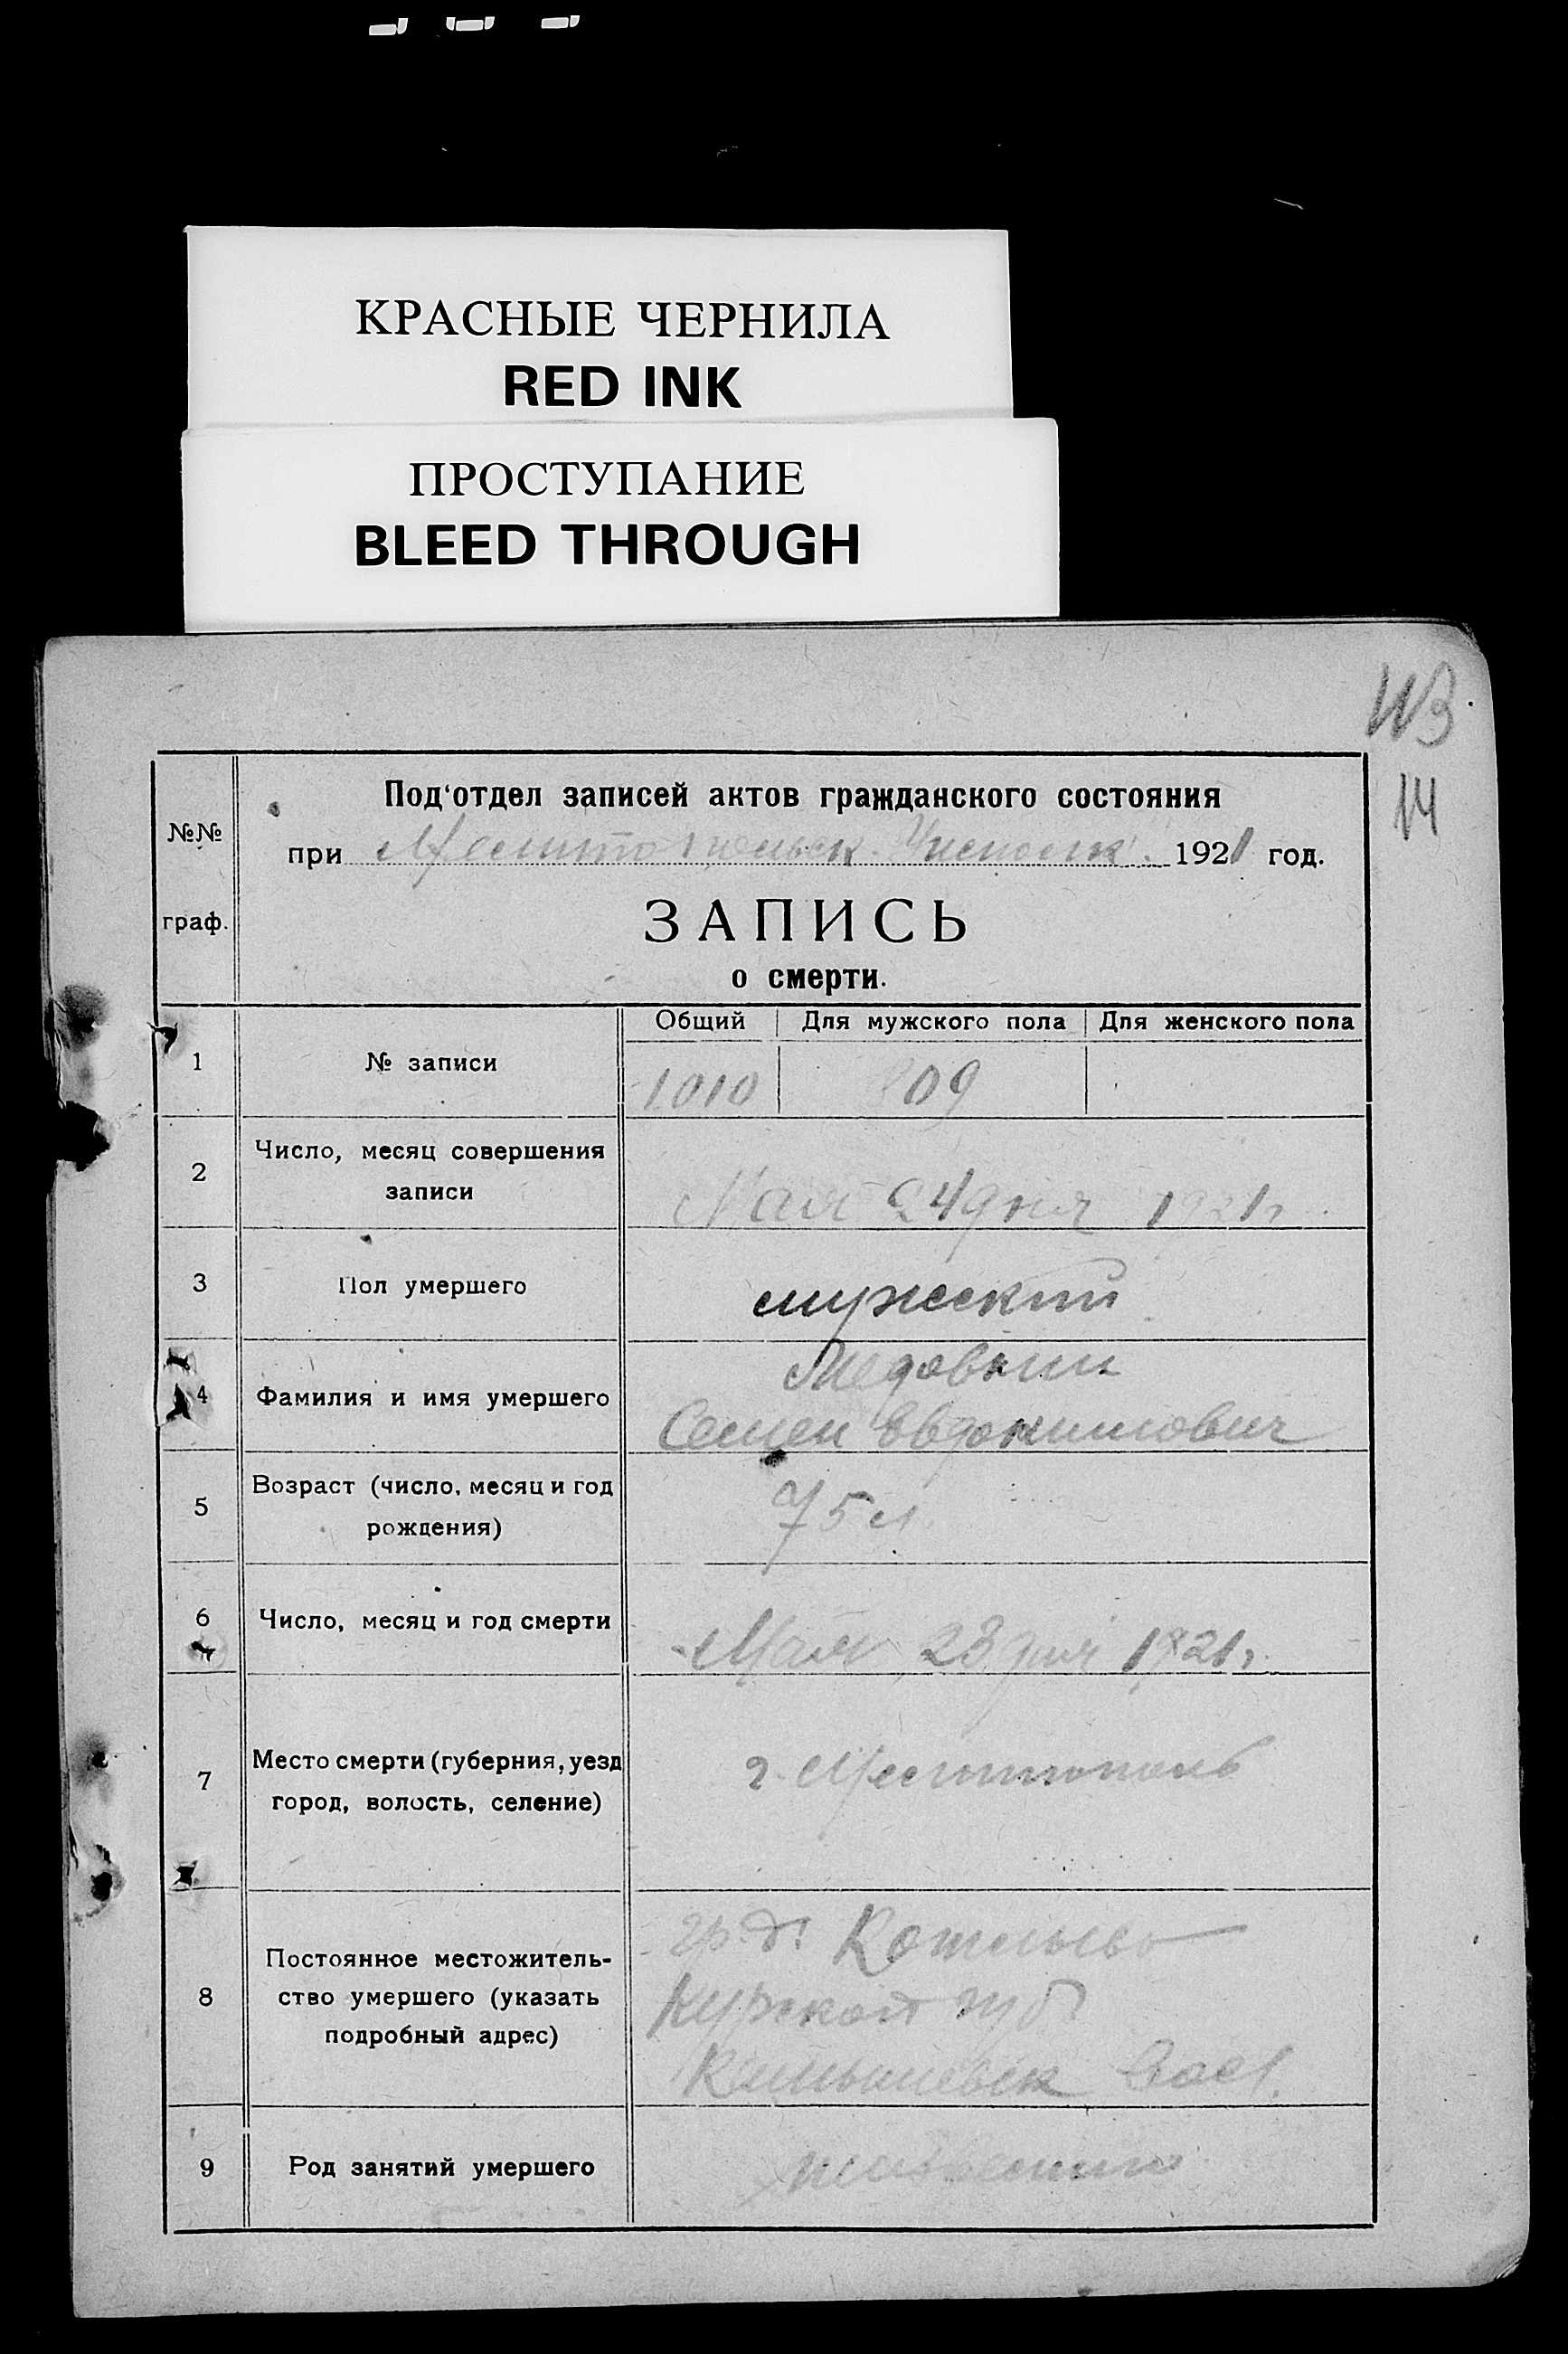 КРАСНЫЕ ЧЕРНИЛА
RED INK
ПРОСТУПАНИЕ
BLEED THROUGH
113
14
№№
граф.
Под‘отдел записей актов гражданского состояния
при Мелитопольск. 1921 год.
ЗАПИСЬ
о смерти.
Общий Для мужского пола Для женского пола
1 № записи 1010 809
2 Число, месяц совершения
записи
Мая 24 дня 1921 г.
3 Пол умершего мужеский
4 Фамилия и имя умершего
Медовкин
Семен Евдокимович
5 Возраст (число, месяц и год
рождения)
75 л.
6 Число, месяц и год смерти Мая 23 дня 1921 г.
7 Место смерти (губерния, уезд
город, волость, селение)
г. Мелитополь
8 Постоянное местожитель-
ство умершего (указать
подробный адрес)
гр. д.
Курской губ
9 Род занятий умершего